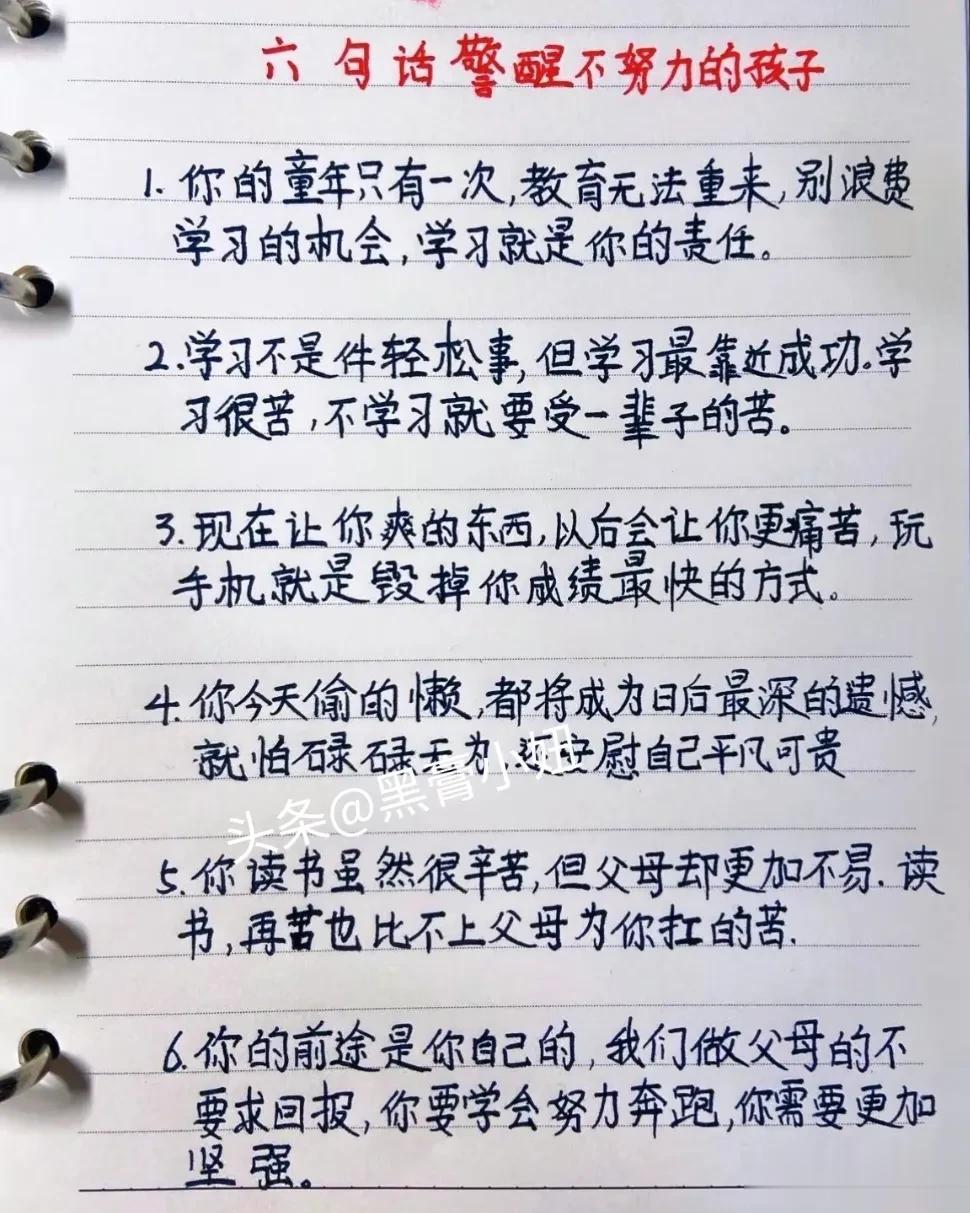 六句话警醒不努力的孩子
1.你的童年只有一次,教育无法重来,别浪费
学习的机会,学习就是你的责任。
2.学习不是件轻松事,但学习最靠近成功。学
习很苦,不学习就要受一辈子的苦。
3.现在让你爽的东西,以后会让你更痛苦,玩
手机就是毁掉你成绩最快的方式。
4.你今天偷的懒,都将成为日后最深的遗憾,
就怕碌碌无为,安慰自己平凡可贵
头条@黑膏小妞
5.你读书虽然很辛苦,但父母却更加不易.读
书,再苦也比不上父母为你扛的苦.
6.你的前途是你自己的,我们做父母的不
要求回报,你要学会努力奔跑,你需要更加
坚强。